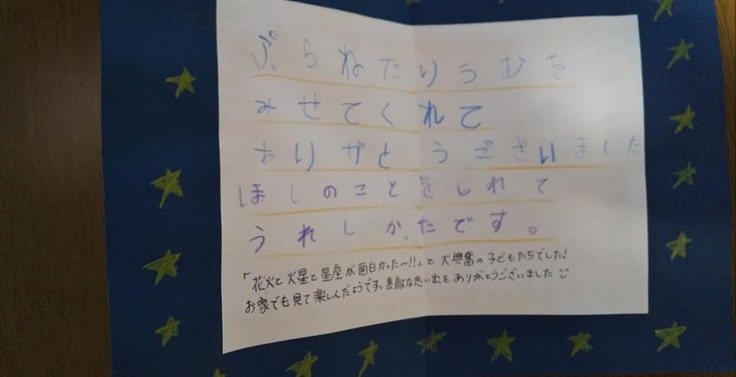 ぷらねたりうむを
みせてくれて
ありがとうございました
ほしのことをしれて
うれしかったです。
「花火と火星と星座が面白かった〜!!」と大興奮の子どもたちでした!
お家でも見て楽しんだようです。素敵な思い出をありがとうございました